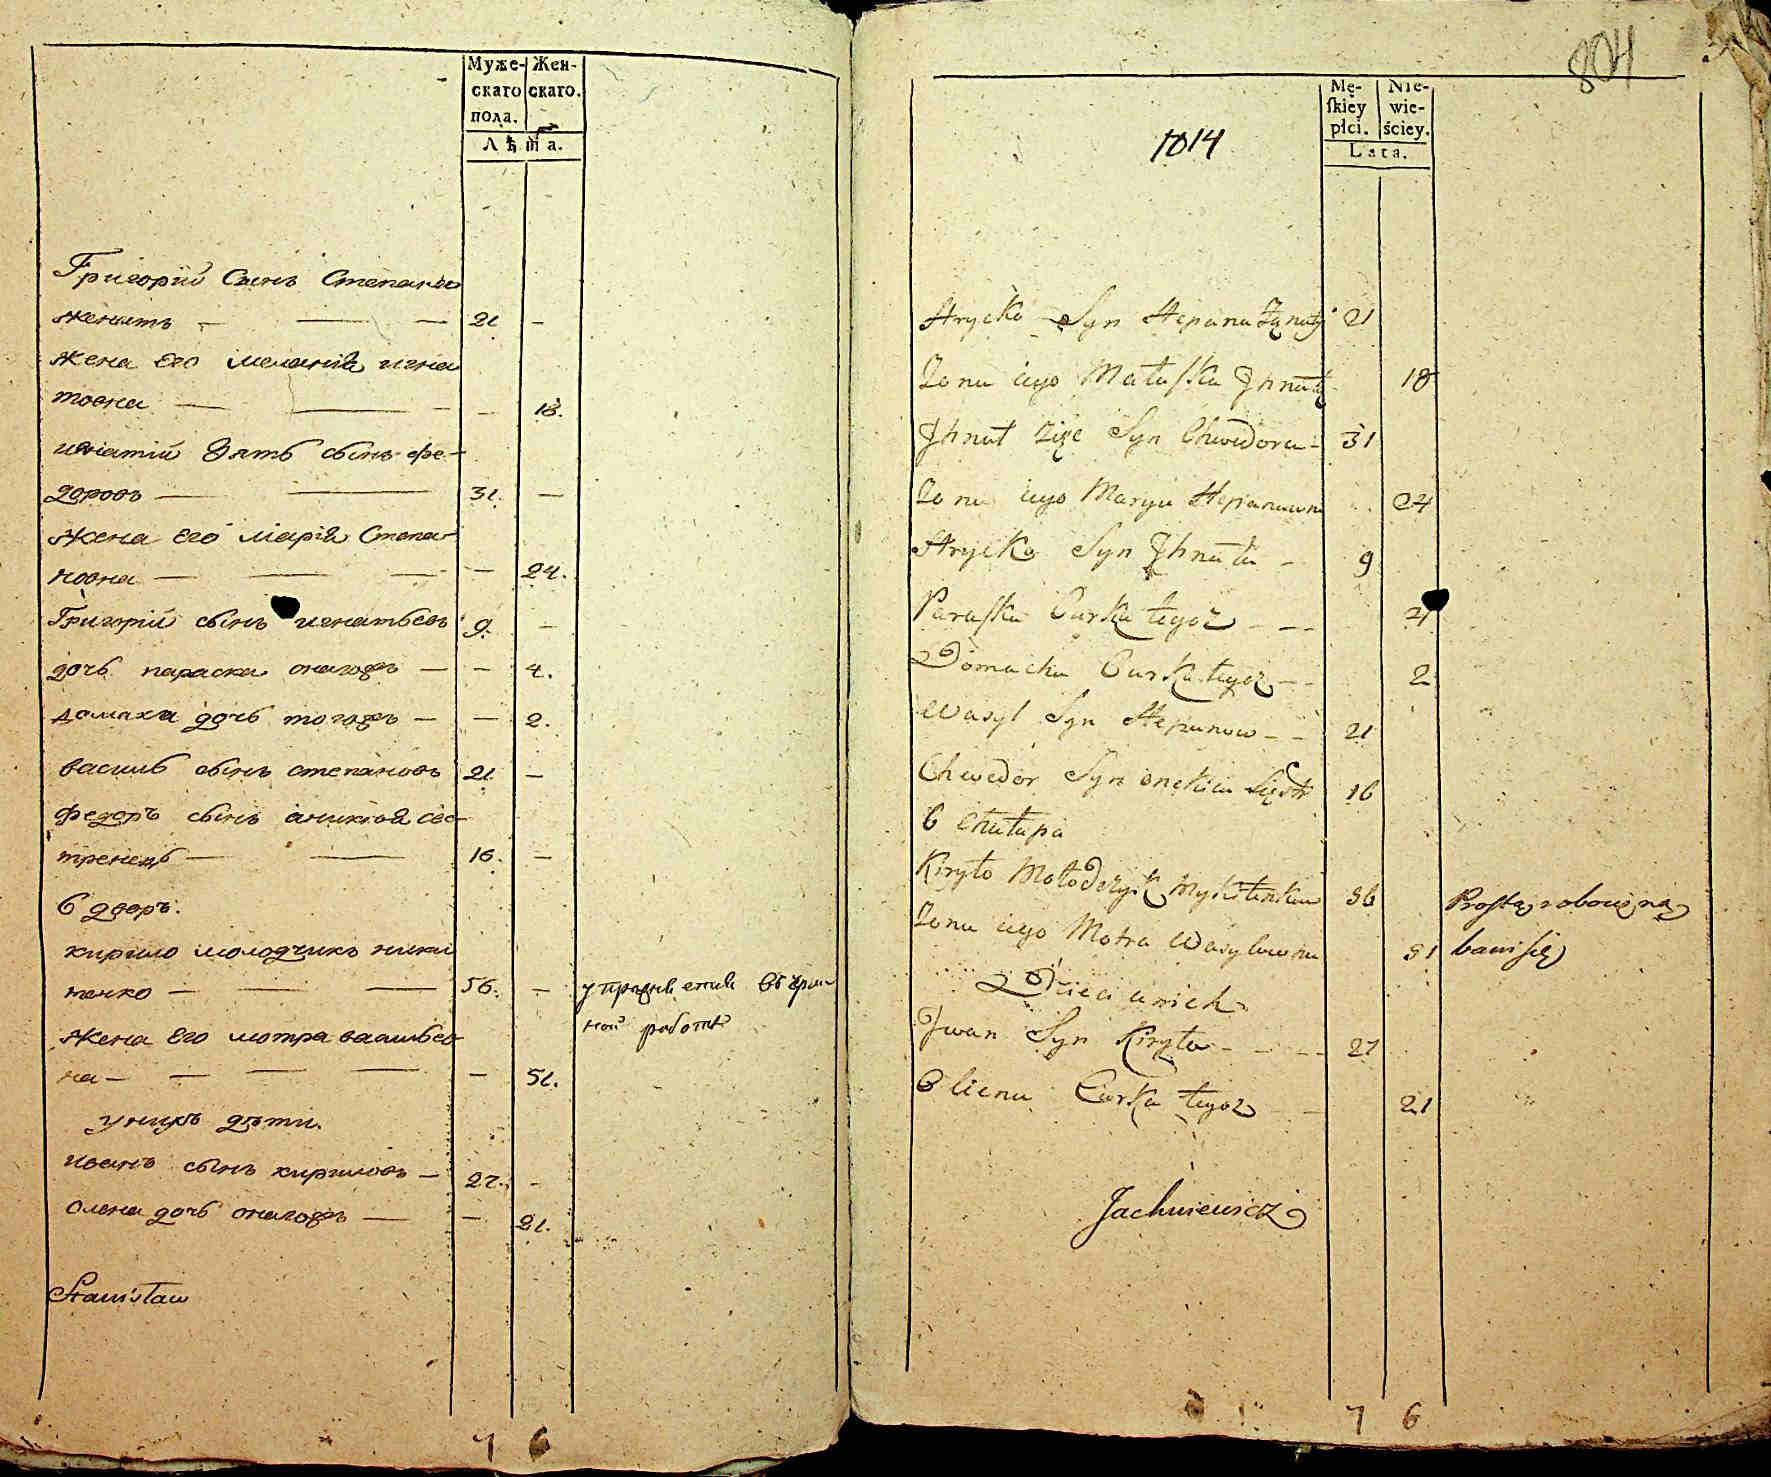 Муже-
скаго
пола.
Жен-
скаго.
Лѣта.
Григорій Сынъ Степана
женатъ — — — 21 —
жена Его меланія игна
товна — — — — 18.
игнатій Зять сынъ фе-
доровъ — — 31. —
жена Его марія Степа-
новна — — — — 24.
Григорій сынъ игнатьевъ 9. —
дочь параска онагожъ — — 4.
домаха дочь тогожъ — — 2.
василь сынъ степановъ 21 —
федоръ сынъ сес-
тренецъ — — 16. —
6 дворъ.
кирило молодчикъ ники
тенко — — — 56. — упражняется въ чрн
ной работѣ
жена Его мотра васильев
на — — — — — 51.
унихъ дѣти.
иванъ сынъ кириловъ — 27. —
олена дочь онагожъ — — 21.
Stanisław
7 6
804
1014
Mę-
skiey
płci.
Nie-
wie-
ściey.
Lata.
Hryćko Syn Stepana Żonaty 21
Zona iego Małaszka Ihnata 18
Ihnat Zięć Syn Chwedora - 31
Zona iego Marya Stepanowna 24
Hryćko Syn Ihnata - 9
Paraska Curka tegoż - - - 4
Domacha Curka tegoż - - 2
Wasyl Syn Stepanow - - 21
Chwedor Syn 16
6 Chałupa
Kiryło Mołodczyk Mykitenkow 56 Prostą robocizną
Zona iego Motra Wasylowna 51 bawi się
Dzieci u nich
Iwan Syn Kiryło - - - - 27
Olena Curka tegoż - - 21
Jachniewicz
7 6